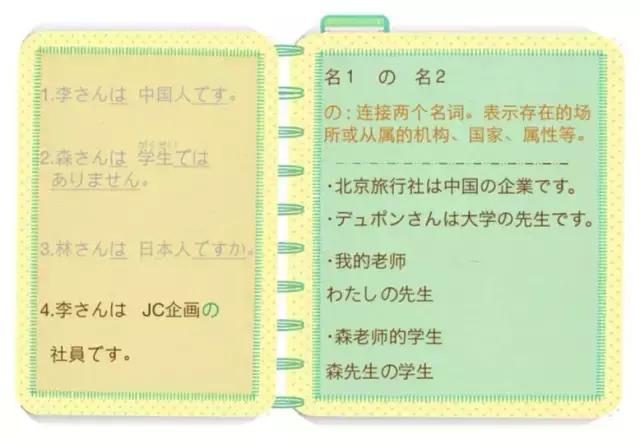 1.李さんは 中国人です。
がくせい
2.森さんは 学生では
ありません。
3.林さんは 日本人ですか。
4.李さんは JC企画の
社員です。
名1 の 名2
の:连接两个名词。表示存在的场
所或从属的机构、国家、属性等。
·北京旅行社は中国の企業です。
·デュポンさんは大学の先生です。
·我的老师
わたしの先生
·森老师的学生
森先生の学生